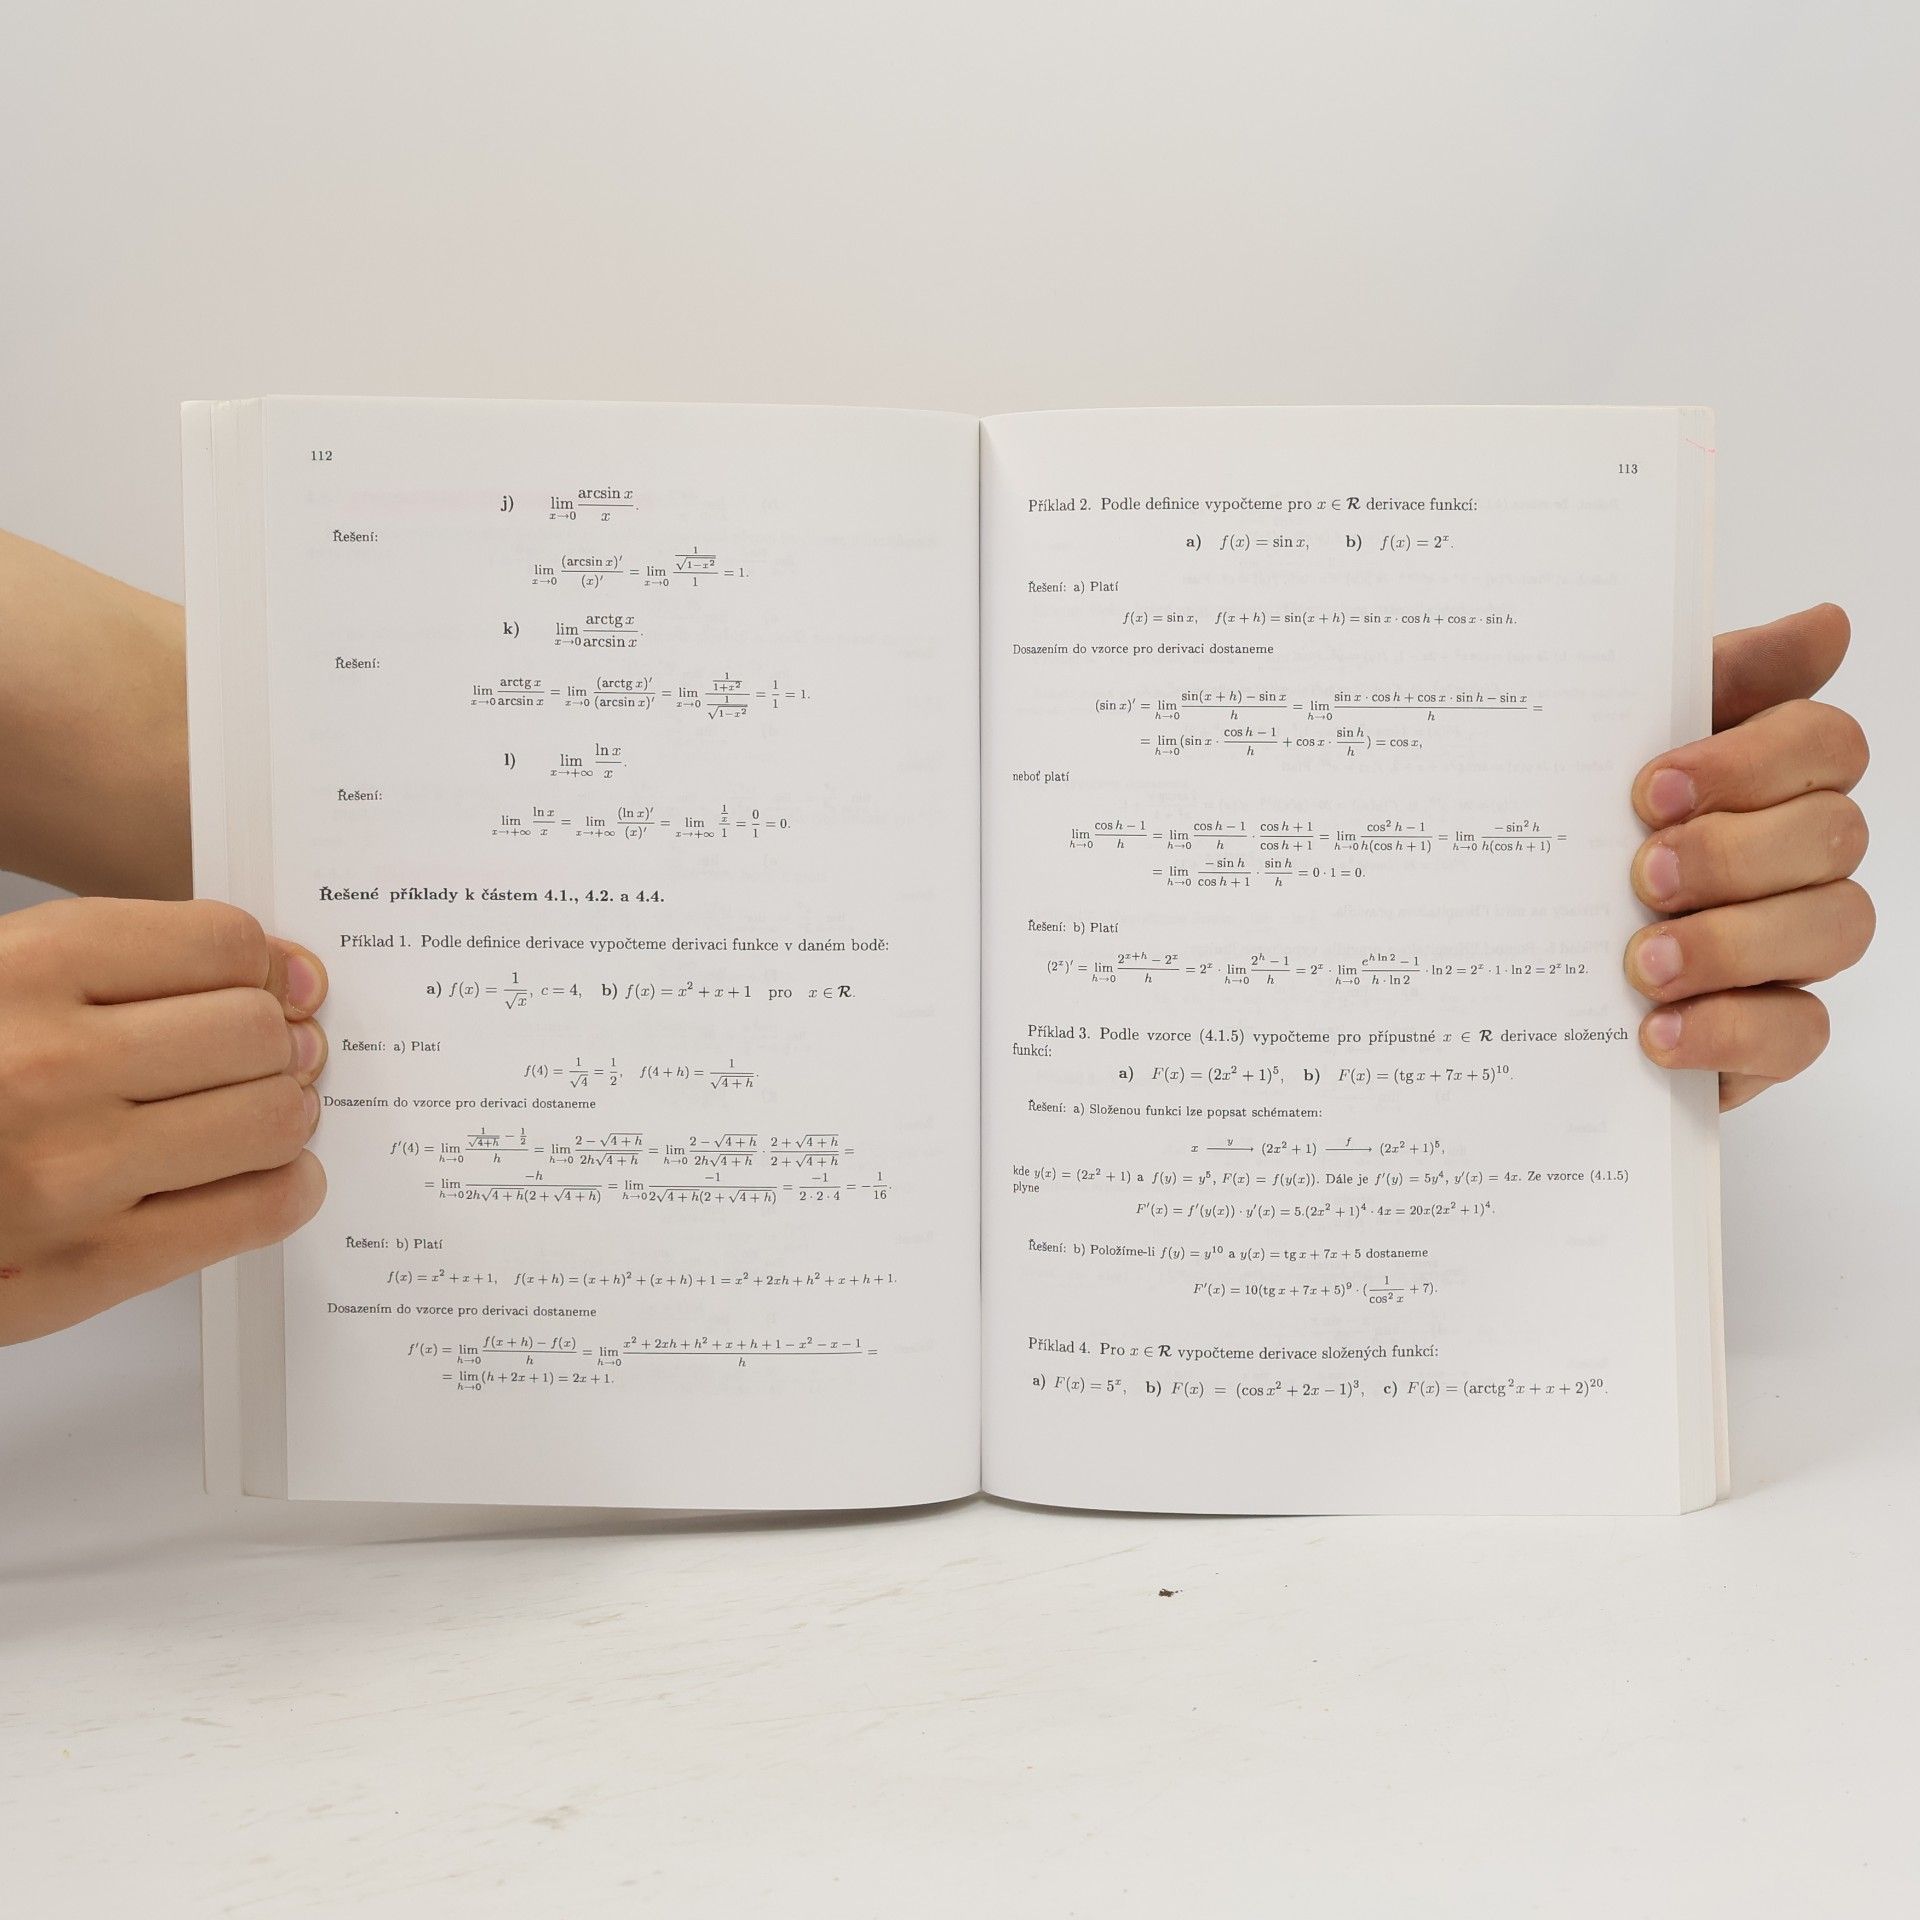 112
j) lim_{x→0} arcsin x / x.
Řešení:
lim_{x→0} (arcsin x)′ / (x)′ = lim_{x→0} (1/√(1−x²)) / 1 = 1.
k) lim_{x→0} arctg x / arcsin x.
Řešení:
lim_{x→0} arctg x / arcsin x = lim_{x→0} (arctg x)′ / (arcsin x)′ = lim_{x→0} (1/(1+x²)) / (1/√(1−x²)) = 1/1 = 1.
l) lim_{x→+∞} ln x / x.
Řešení:
lim_{x→+∞} ln x / x = lim_{x→+∞} (ln x)′ / (x)′ = lim_{x→+∞} (1/x) / 1 = 0/1 = 0.
Řešené příklady k částem 4.1., 4.2. a 4.4.
Příklad 1. Podle definice derivace vypočteme derivaci funkce v daném bodě:
a) f(x) = 1/√x, c = 4, b) f(x) = x² + x + 1 pro x ∈ R.
Řešení: a) Platí
f(4) = 1/√4 = 1/2, f(4 + h) = 1/√(4 + h).
Dosazením do vzorce pro derivaci dostaneme
f′(4) = lim_{h→0} (1/√(4+h) − 1/2) / h = lim_{h→0} (2 − √(4 + h)) / (2h√(4 + h)) = lim_{h→0} (2 − √(4 + h)) / (2h√(4 + h)) · (2 + √(4 + h)) / (2 + √(4 + h)) =
= lim_{h→0} −h / (2h√(4 + h)(2 + √(4 + h))) = lim_{h→0} −1 / (2√(4 + h)(2 + √(4 + h))) = −1 / (2 · 2 · 4) = −1/16.
Řešení: b) Platí
f(x) = x² + x + 1, f(x + h) = (x + h)² + (x + h) + 1 = x² + 2xh + h² + x + h + 1.
Dosazením do vzorce pro derivaci dostaneme
f′(x) = lim_{h→0} (f(x + h) − f(x)) / h = lim_{h→0} (x² + 2xh + h² + x + h + 1 − x² − x − 1) / h =
= lim_{h→0} (h + 2x + 1) = 2x + 1.
113
Příklad 2. Podle definice vypočteme pro x ∈ R derivace funkcí:
a) f(x) = sin x, b) f(x) = 2ˣ.
Řešení: a) Platí
f(x) = sin x, f(x + h) = sin(x + h) = sin x · cos h + cos x · sin h.
Dosazením do vzorce pro derivaci dostaneme
(sin x)′ = lim_{h→0} (sin(x + h) − sin x) / h = lim_{h→0} (sin x · cos h + cos x · sin h − sin x) / h =
= lim_{h→0} (sin x · (cos h − 1)/h + cos x · sin h / h) = cos x,
neboť platí
lim_{h→0} (cos h − 1) / h = lim_{h→0} (cos h − 1) / h · (cos h + 1) / (cos h + 1) = lim_{h→0} (cos² h − 1) / (h(cos h + 1)) = lim_{h→0} − sin² h / (h(cos h + 1)) =
= lim_{h→0} − sin h / (cos h + 1) · sin h / h = 0 · 1 = 0.
Řešení: b) Platí
(2ˣ)′ = lim_{h→0} (2^{x+h} − 2ˣ) / h = 2ˣ · lim_{h→0} (2^h − 1) / h = 2ˣ · lim_{h→0} (e^{h ln 2} − 1) / (h · ln 2) · ln 2 = 2ˣ · 1 · ln 2 = 2ˣ ln 2.
Příklad 3. Podle vzorce (4.1.5) vypočteme pro přípustné x ∈ R derivace složených
funkcí:
a) F(x) = (2x² + 1)⁵, b) F(x) = (tg x + 7x + 5)¹⁰.
Řešení: a) Složenou funkci lze popsat schématem:
x —y→ (2x² + 1) —f→ (2x² + 1)⁵,
kde y(x) = (2x² + 1) a f(y) = y⁵, F(x) = f(y(x)). Dále je f′(y) = 5y⁴, y′(x) = 4x. Ze vzorce (4.1.5)
plyne
F′(x) = f′(y(x)) · y′(x) = 5.(2x² + 1)⁴ · 4x = 20x(2x² + 1)⁴.
Řešení: b) Položíme-li f(y) = y¹⁰ a y(x) = tg x + 7x + 5 dostaneme
F′(x) = 10(tg x + 7x + 5)⁹ · (1/cos² x + 7).
Příklad 4. Pro x ∈ R vypočteme derivace složených funkcí:
a) F(x) = 5ˣ, b) F(x) = (cos x² + 2x − 1)³, c) F(x) = (arctg² x + x + 2)²⁰.